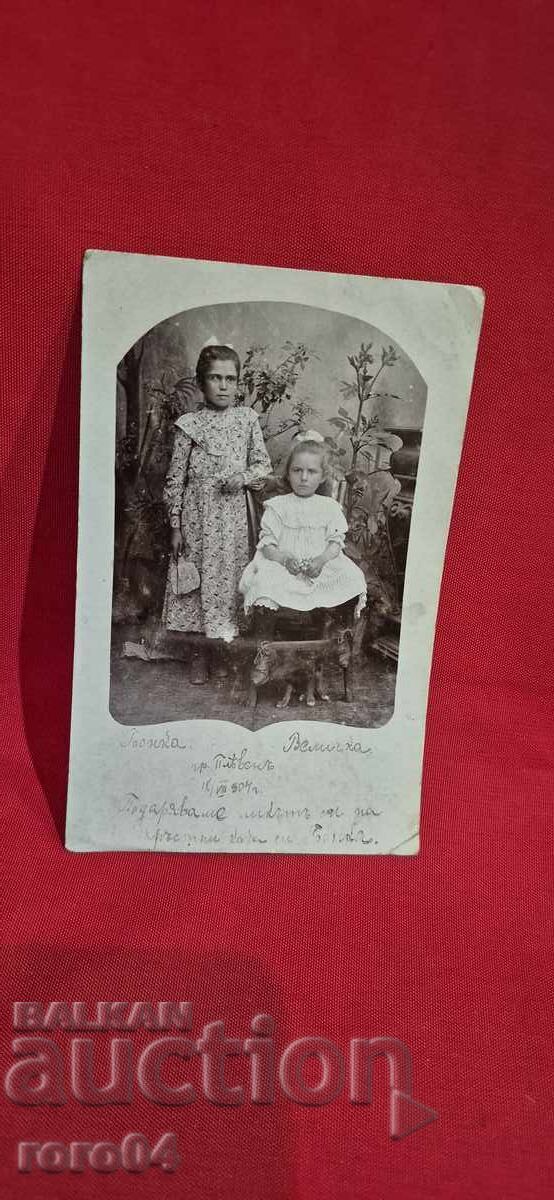 Бонка. Величка.
гр. Плѣвенъ
VIII 904 г.
Подаряваме ликътъ си на
кака си Бонка.
BALKAN
auction
roro04